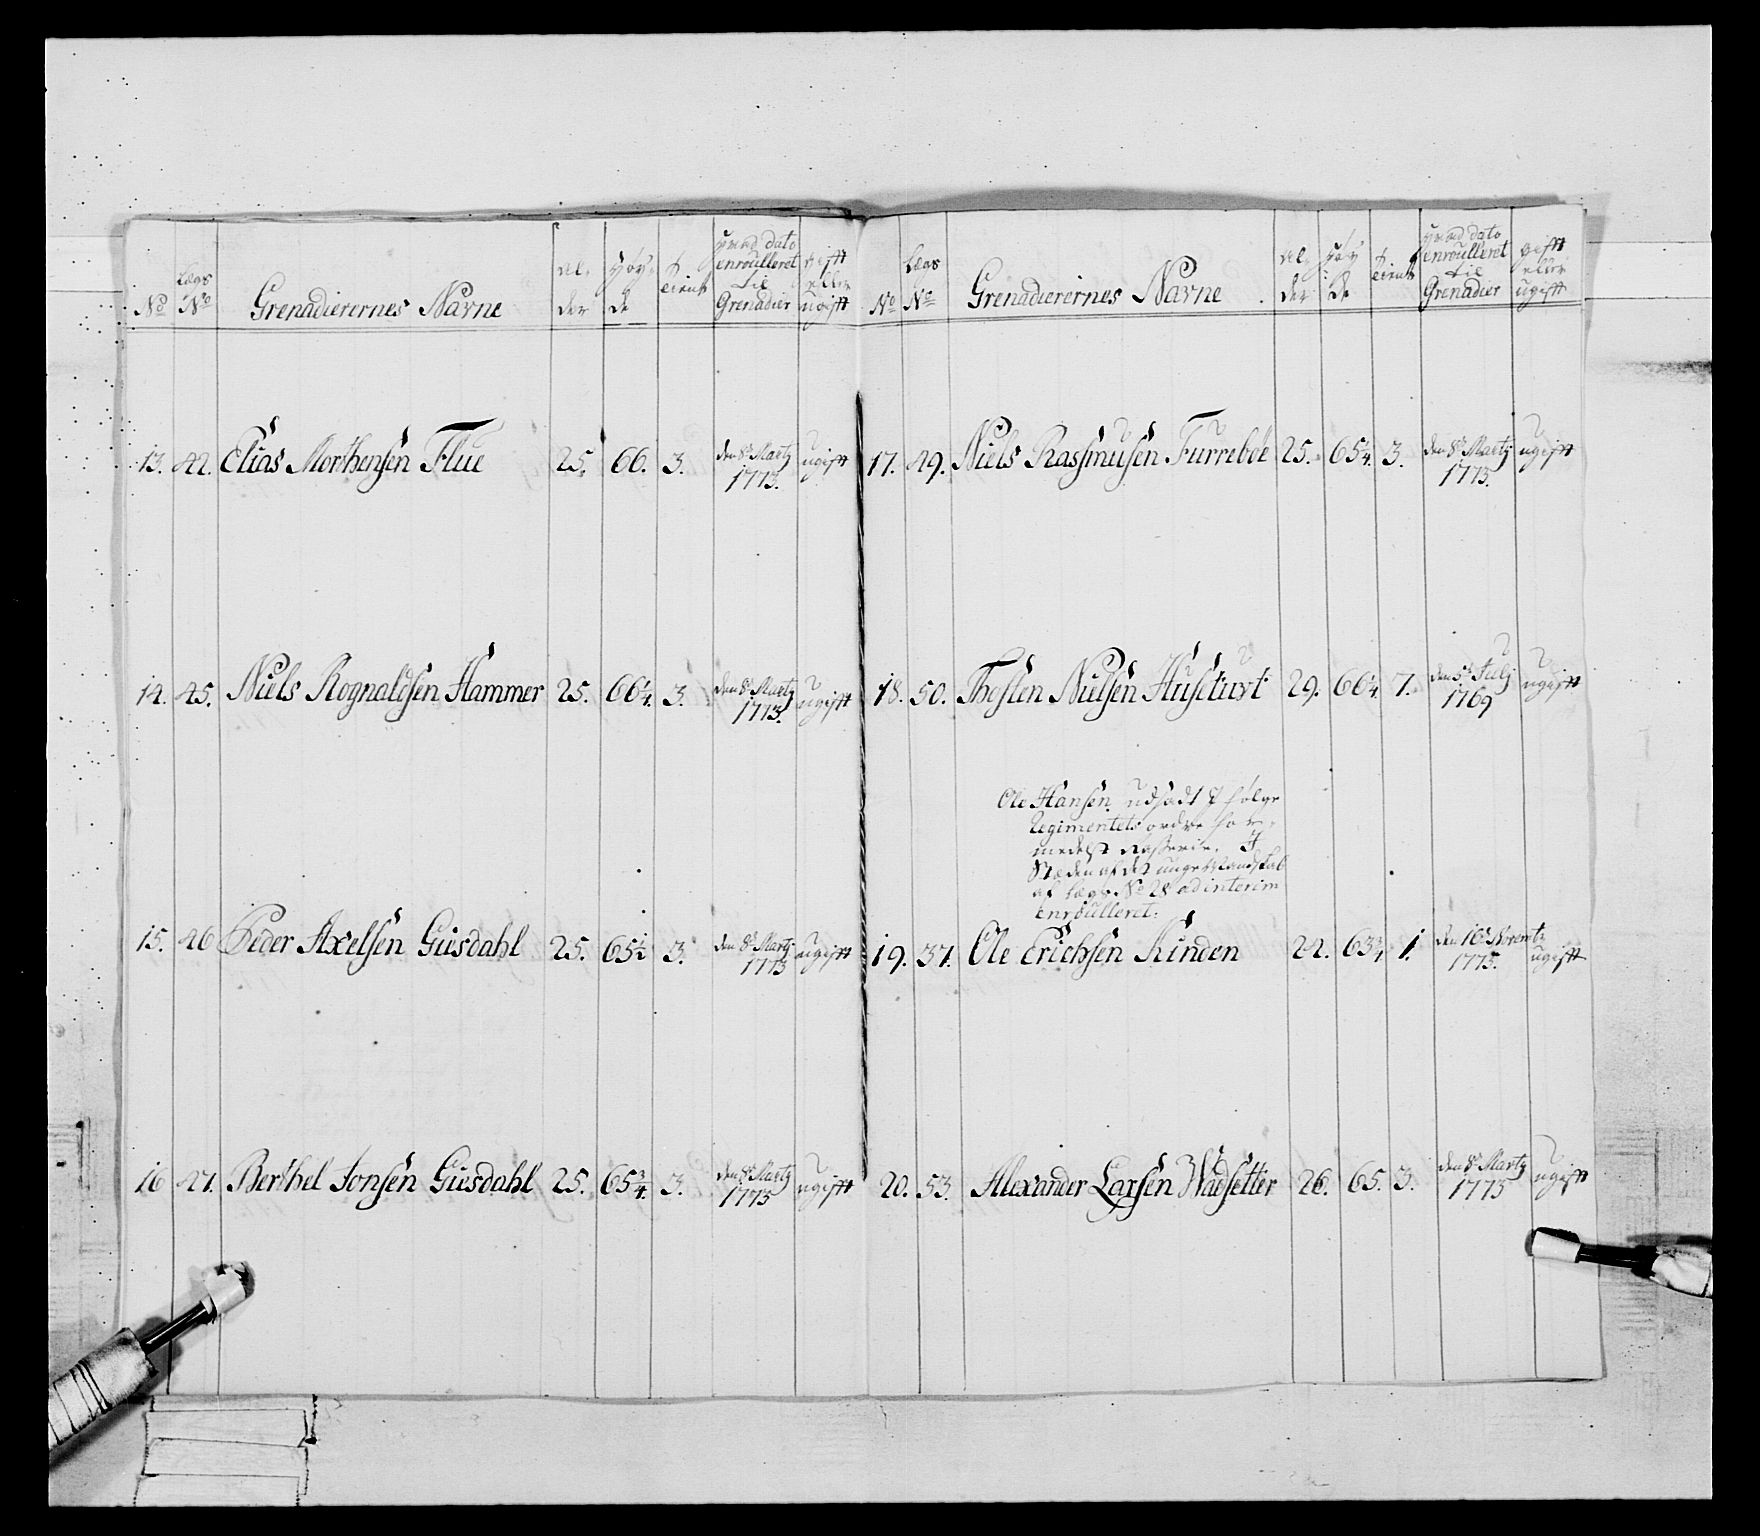 No
Lægs No
Grenadierernes Navne
Al-der
Høy-de
Tient
Hvad dato enroulleret til Grenadier
gift eller ugift
13. 42. Elias Morthensen Flue 25. 66. 3. den 8t Martz 1773. ugift
14. 45. Niels Rognaldsen Hammer 25. 66 1/4. 3. den 8t Martz 1773. ugift
15. 46 Peder Axelsen Giusdahl 25. 65 1/4 3. den 8t Martz 1773 ugift
16 47. Berthel Jonsen Giusdahl 25. 65 3/4. 3. den 8t Martz 1773 ugift
No
Lægs No
Grenadierernes Navne
Al-der
Høy-de
Tient
Hvad dato enroulleret til Grenadier
gift eller ugift
17. 49. Niels Rasmusen Furreböe 25. 65 1/4. 3. den 8t Martz 1773. ugift
18. 50. Thosten Nielsen Husetuvt 29. 66 1/4. 7. den 5t Julj 1769 ugift
Ole Hansen udsadt følge
Regimentets ordre for-
medelst
Stæden af det unge Mandskab
af Lægs No 28 ad interim
enroulleret:
19. 37. Ole Erichsen Rinden 22. 63 3/4 1. den 16t Novembr 1775. ugift
20. 53. Alexander Larsen Wadsetter 26. 65. 3. den 8t Martz 1773 ugift